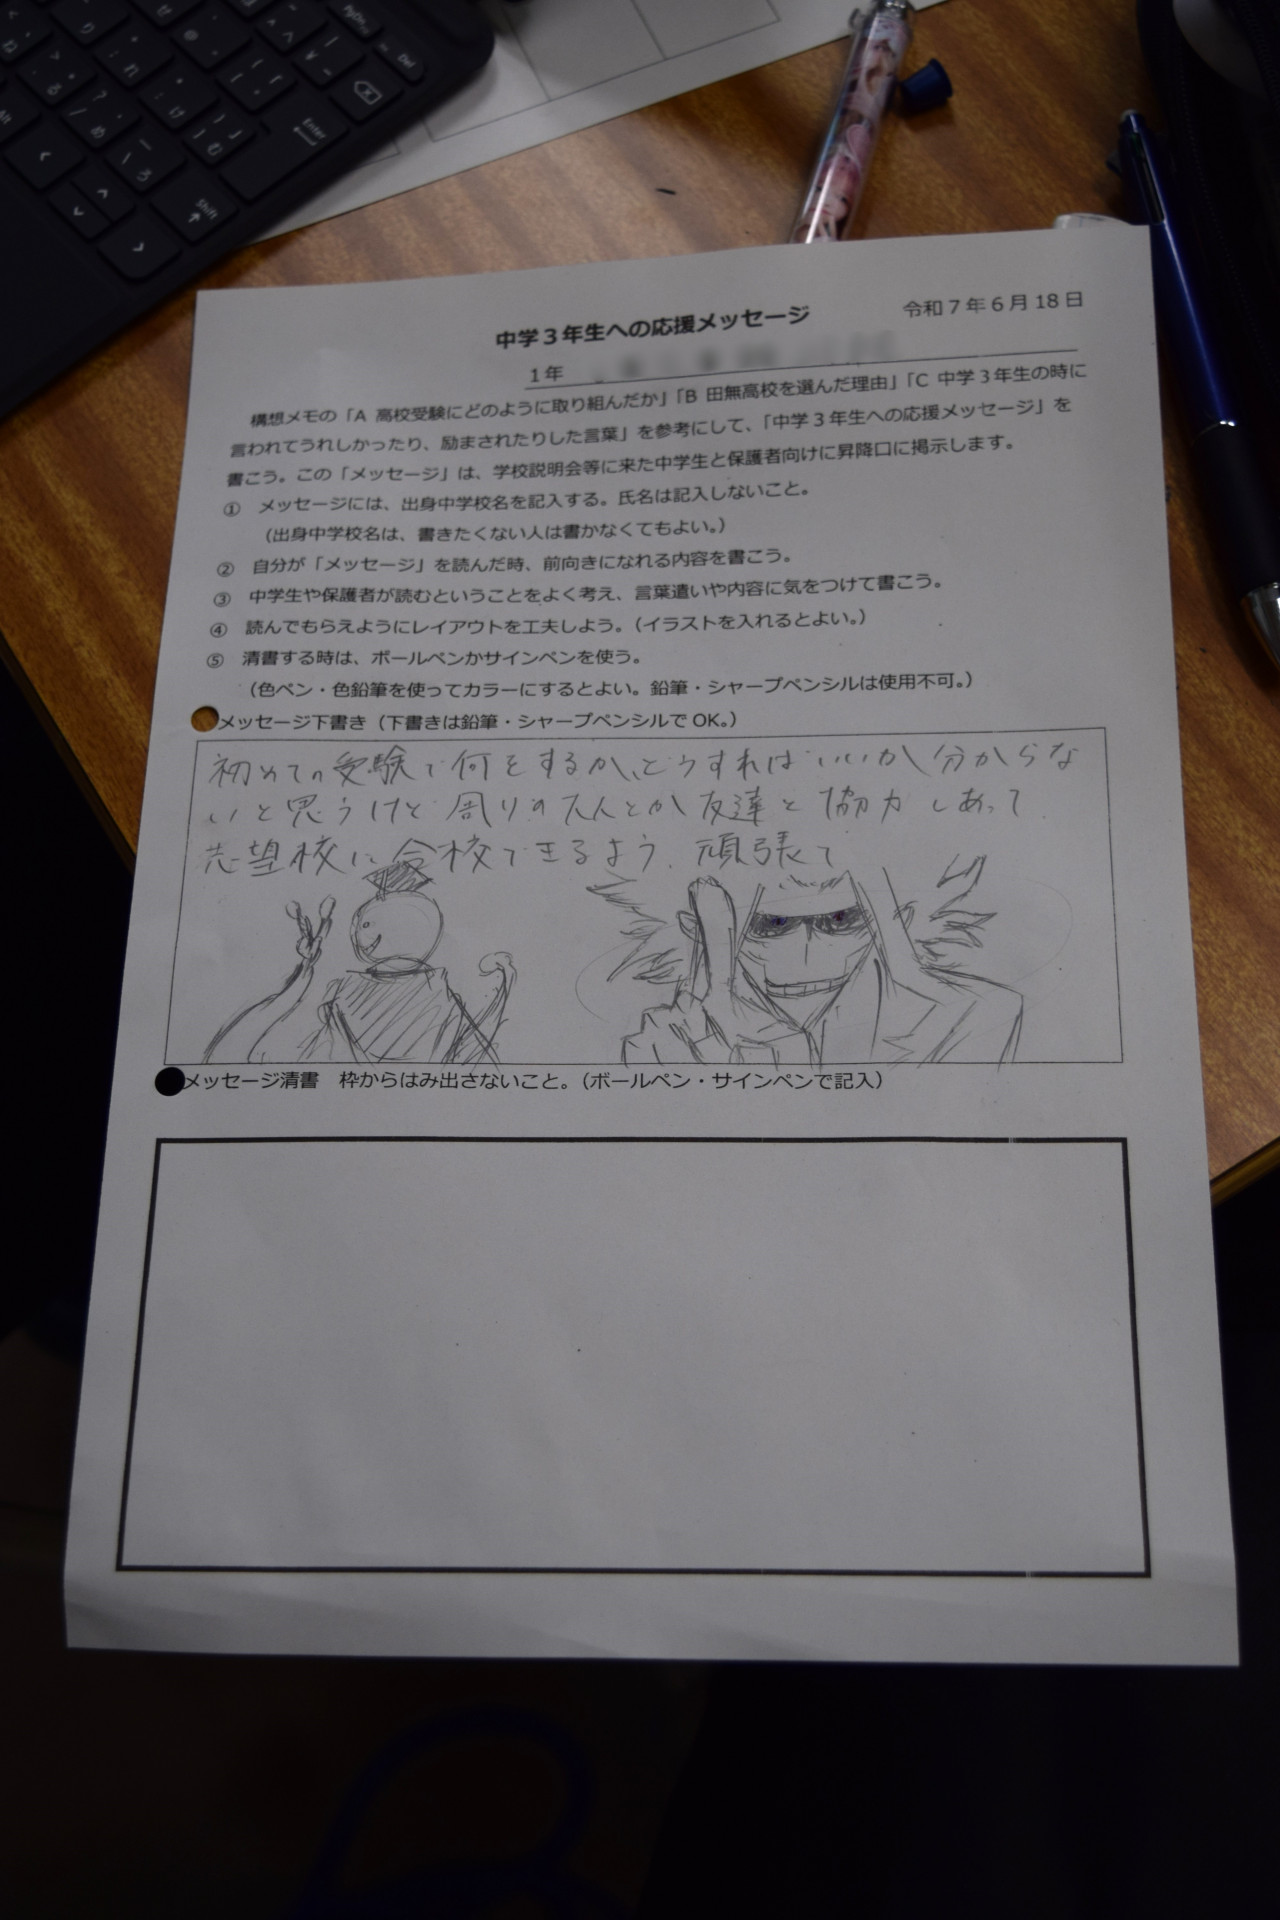 中学３年生への応援メッセージ
令和７年６月18日
１年
構想メモの「A 高校受験にどのように取り組んだか」「B 田無高校を選んだ理由」「C 中学３年生の時に
言われてうれしかったり、励まされたりした言葉」を参考にして、「中学３年生への応援メッセージ」を
書こう。この「メッセージ」は、学校説明会等に来た中学生と保護者向けに昇降口に掲示します。
① メッセージには、出身中学校名を記入する。氏名は記入しないこと。
（出身中学校名は、書きたくない人は書かなくてもよい。）
② 自分が「メッセージ」を読んだ時、前向きになれる内容を書こう。
③ 中学生や保護者が読むということをよく考え、言葉遣いや内容に気をつけて書こう。
④ 読んでもらえようにレイアウトを工夫しよう。（イラストを入れるとよい。）
⑤ 清書する時は、ボールペンかサインペンを使う。
（色ペン・色鉛筆を使ってカラーにするとよい。鉛筆・シャープペンシルは使用不可。）
メッセージ下書き（下書きは鉛筆・シャープペンシルでOK。）
初めての受験で何をするか、どうすればいいか分からな
いと思うけど周りの大人とか友達と協力しあって
志望校に合校できるよう、頑張て
●メッセージ清書　枠からはみ出さないこと。（ボールペン・サインペンで記入）
Enter
Shift
PgDn
Del
Alt